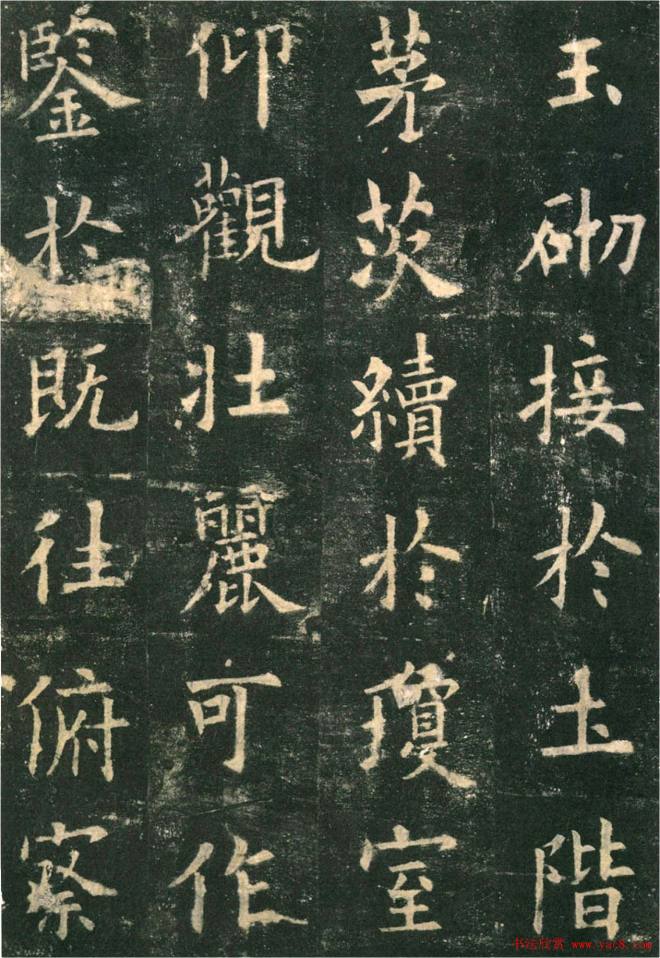 玉砌接於土階
茅茨續於瓊室
仰觀壯麗可作
鑒於既往俯察
书法欣赏 www.yac8.com